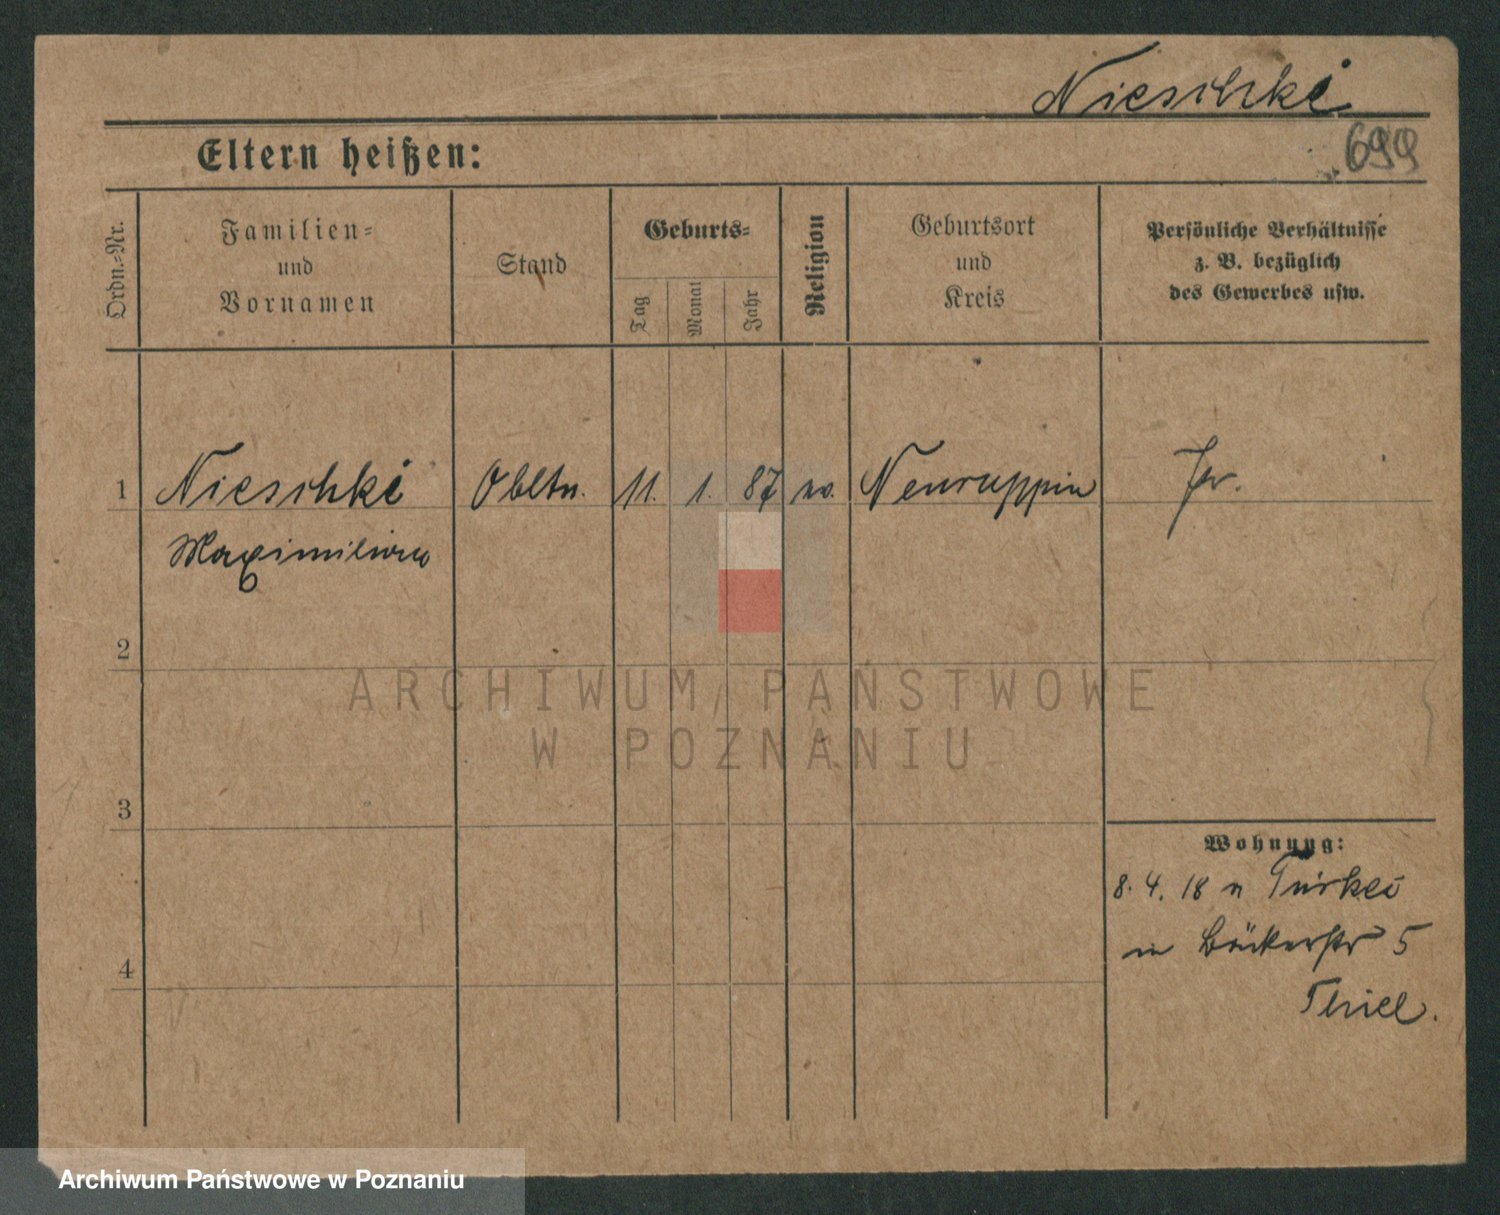 Nieschke
699
Eltern heißen:
Ordn.-Nr.
Familien-
und
Vornamen
Stand
Geburts-
Tag
Monat
Jahr
Religion
Geburtsort
und
Kreis
Persönliche Verhältnisse
z. B. bezüglich
des Gewerbes usw.
1 Nieschke Obltn. 11. 1. 87 ev. Neuruppin Pr.
Maximilian
2
3
4
ARCHIWUM PAŃSTWOWE
W POZNANIU
Wohnung:
8. 4. 18 n Türkei
in Bäckerstr 5
Thiel.
Archiwum Państwowe w Poznaniu